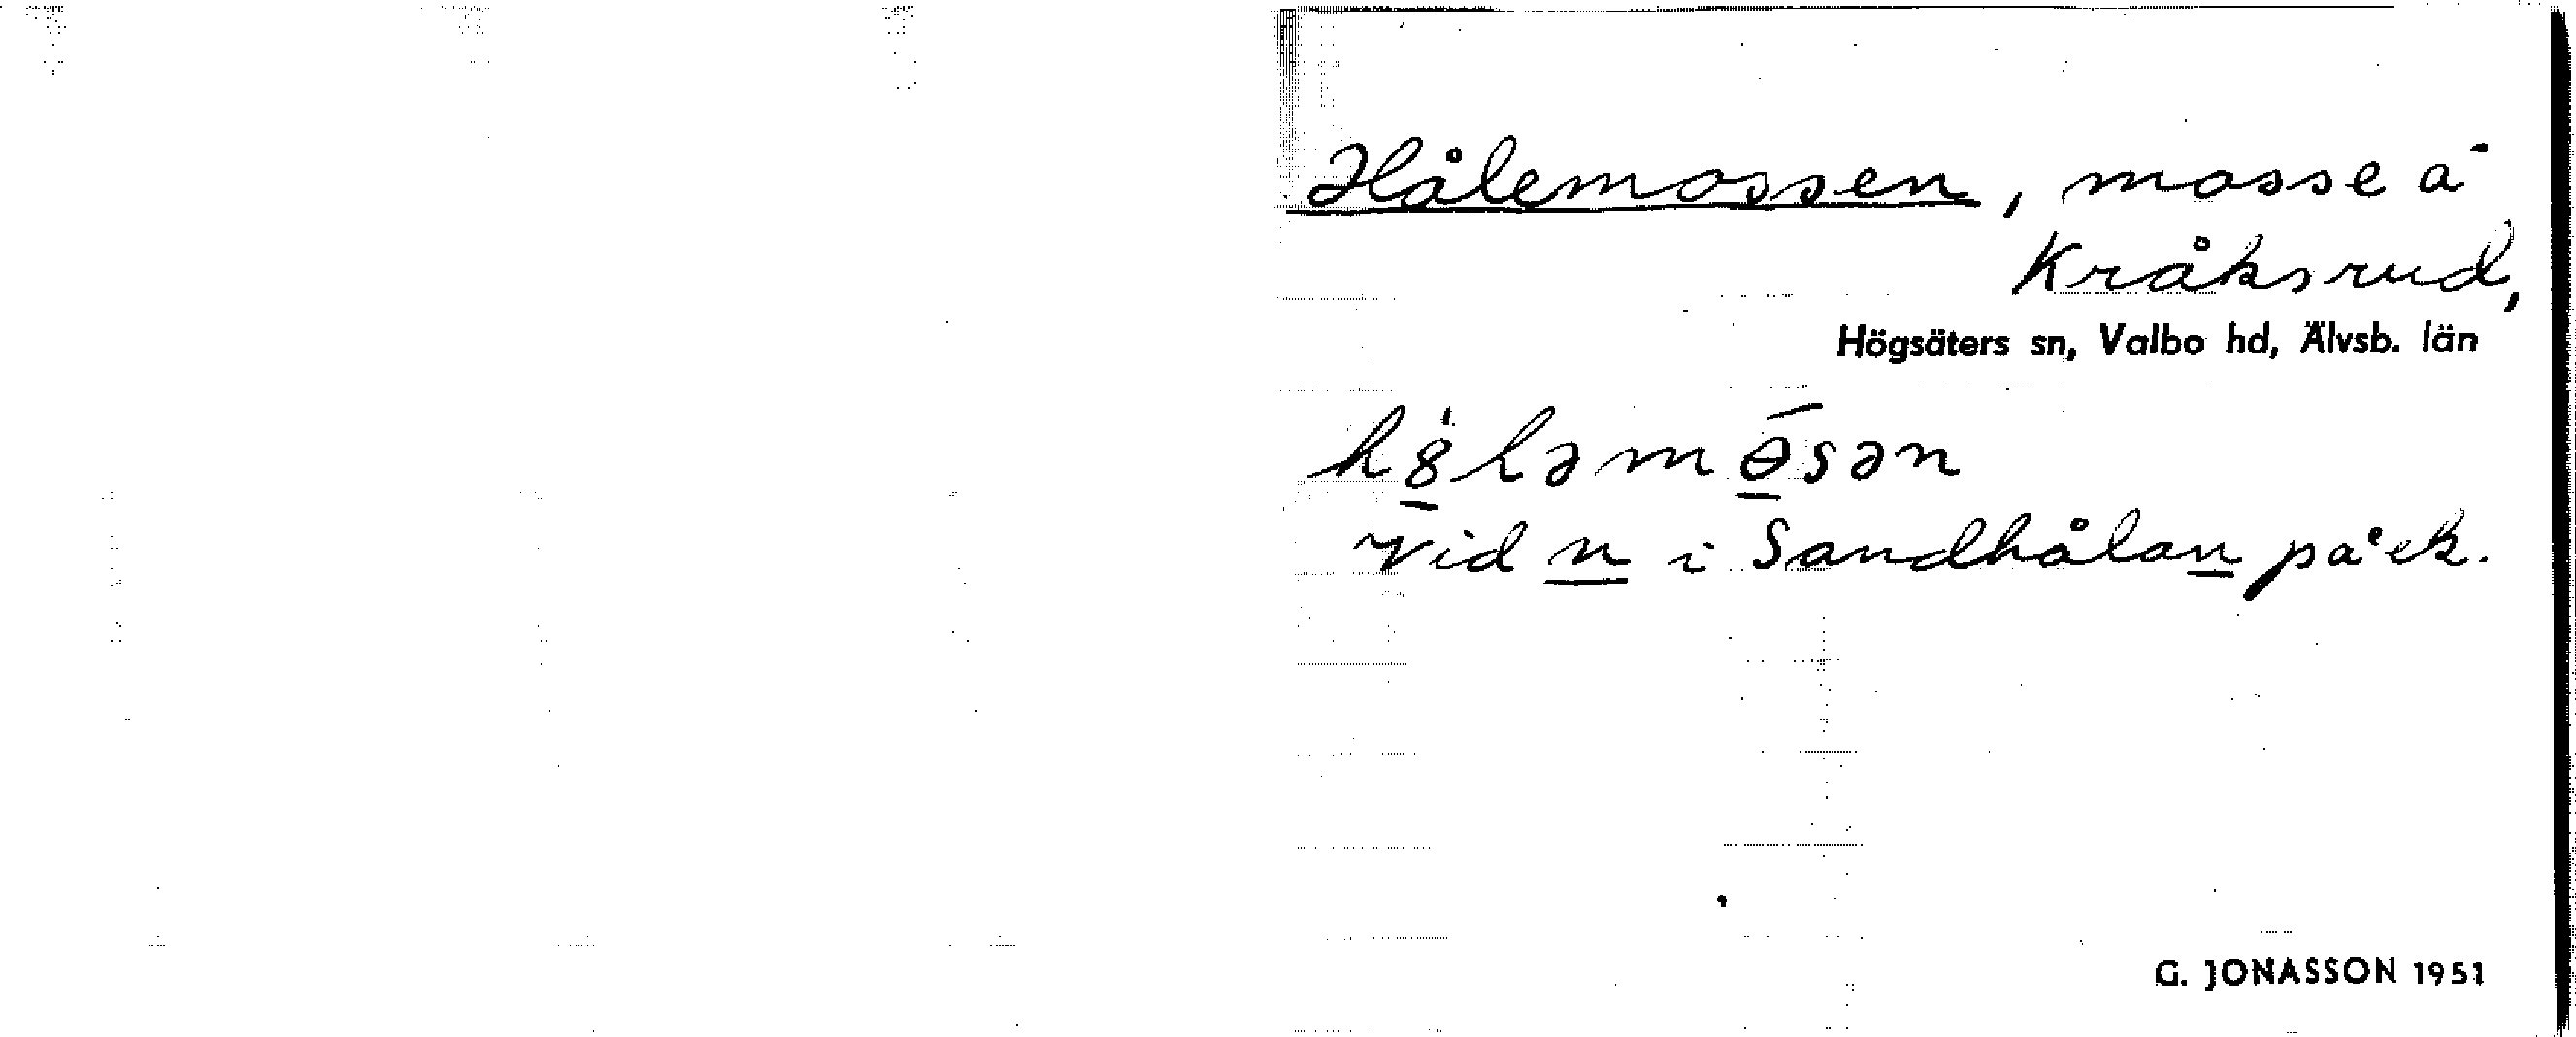 Hålemossen, mosse å
Kråksrud,
Högsäters sn, Valbo hd, Älvsb. län
vid n i Sandhålan på ek.
G. JONASSON 1951